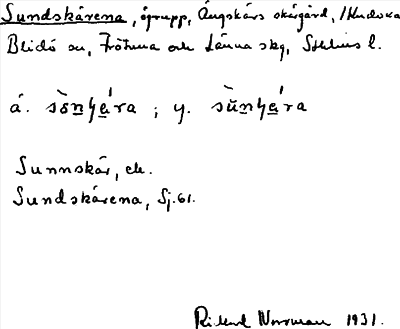 Sundskärena, ögrupp, Ängskärs skärgård,
Blidö sn, Frötuna och Länna skg, Sthlms l.
á. sòn̲ɧá̲ra ; y. sùn̲ɧá̲ra
Sunnskär, ek.
Sundskärena, Sj. 61.
Rikard Norrman 1931.